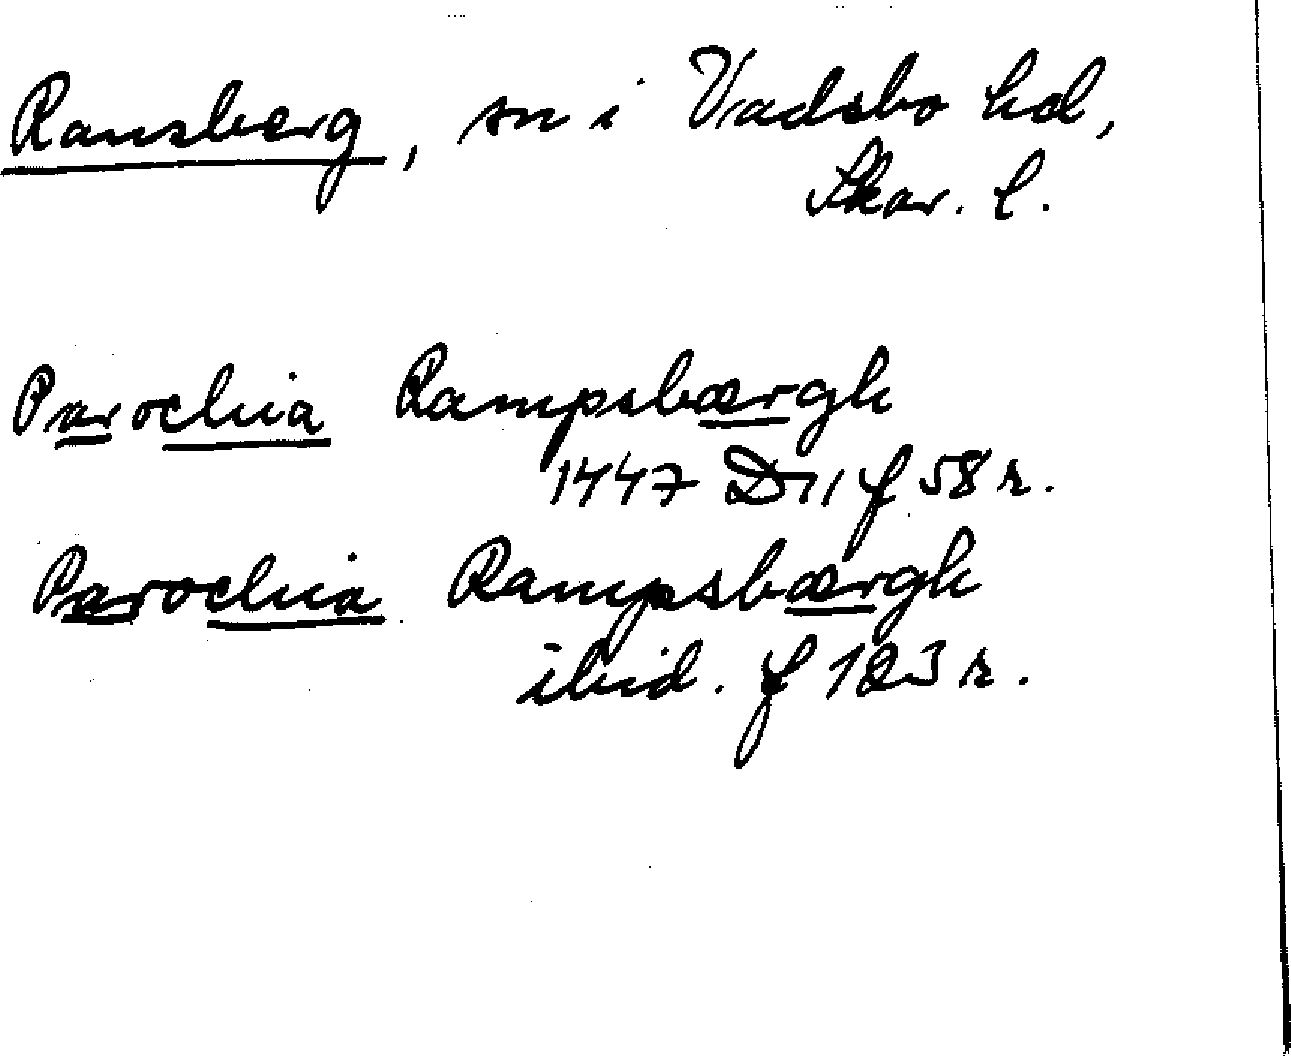 Ransberg, sn i Vadsbo hd,
Skar. l.
Parochia Rampsbærgh
1447 D 11 f 58 r.
Parochia Rampsbærgh
ibid. f 123 r.